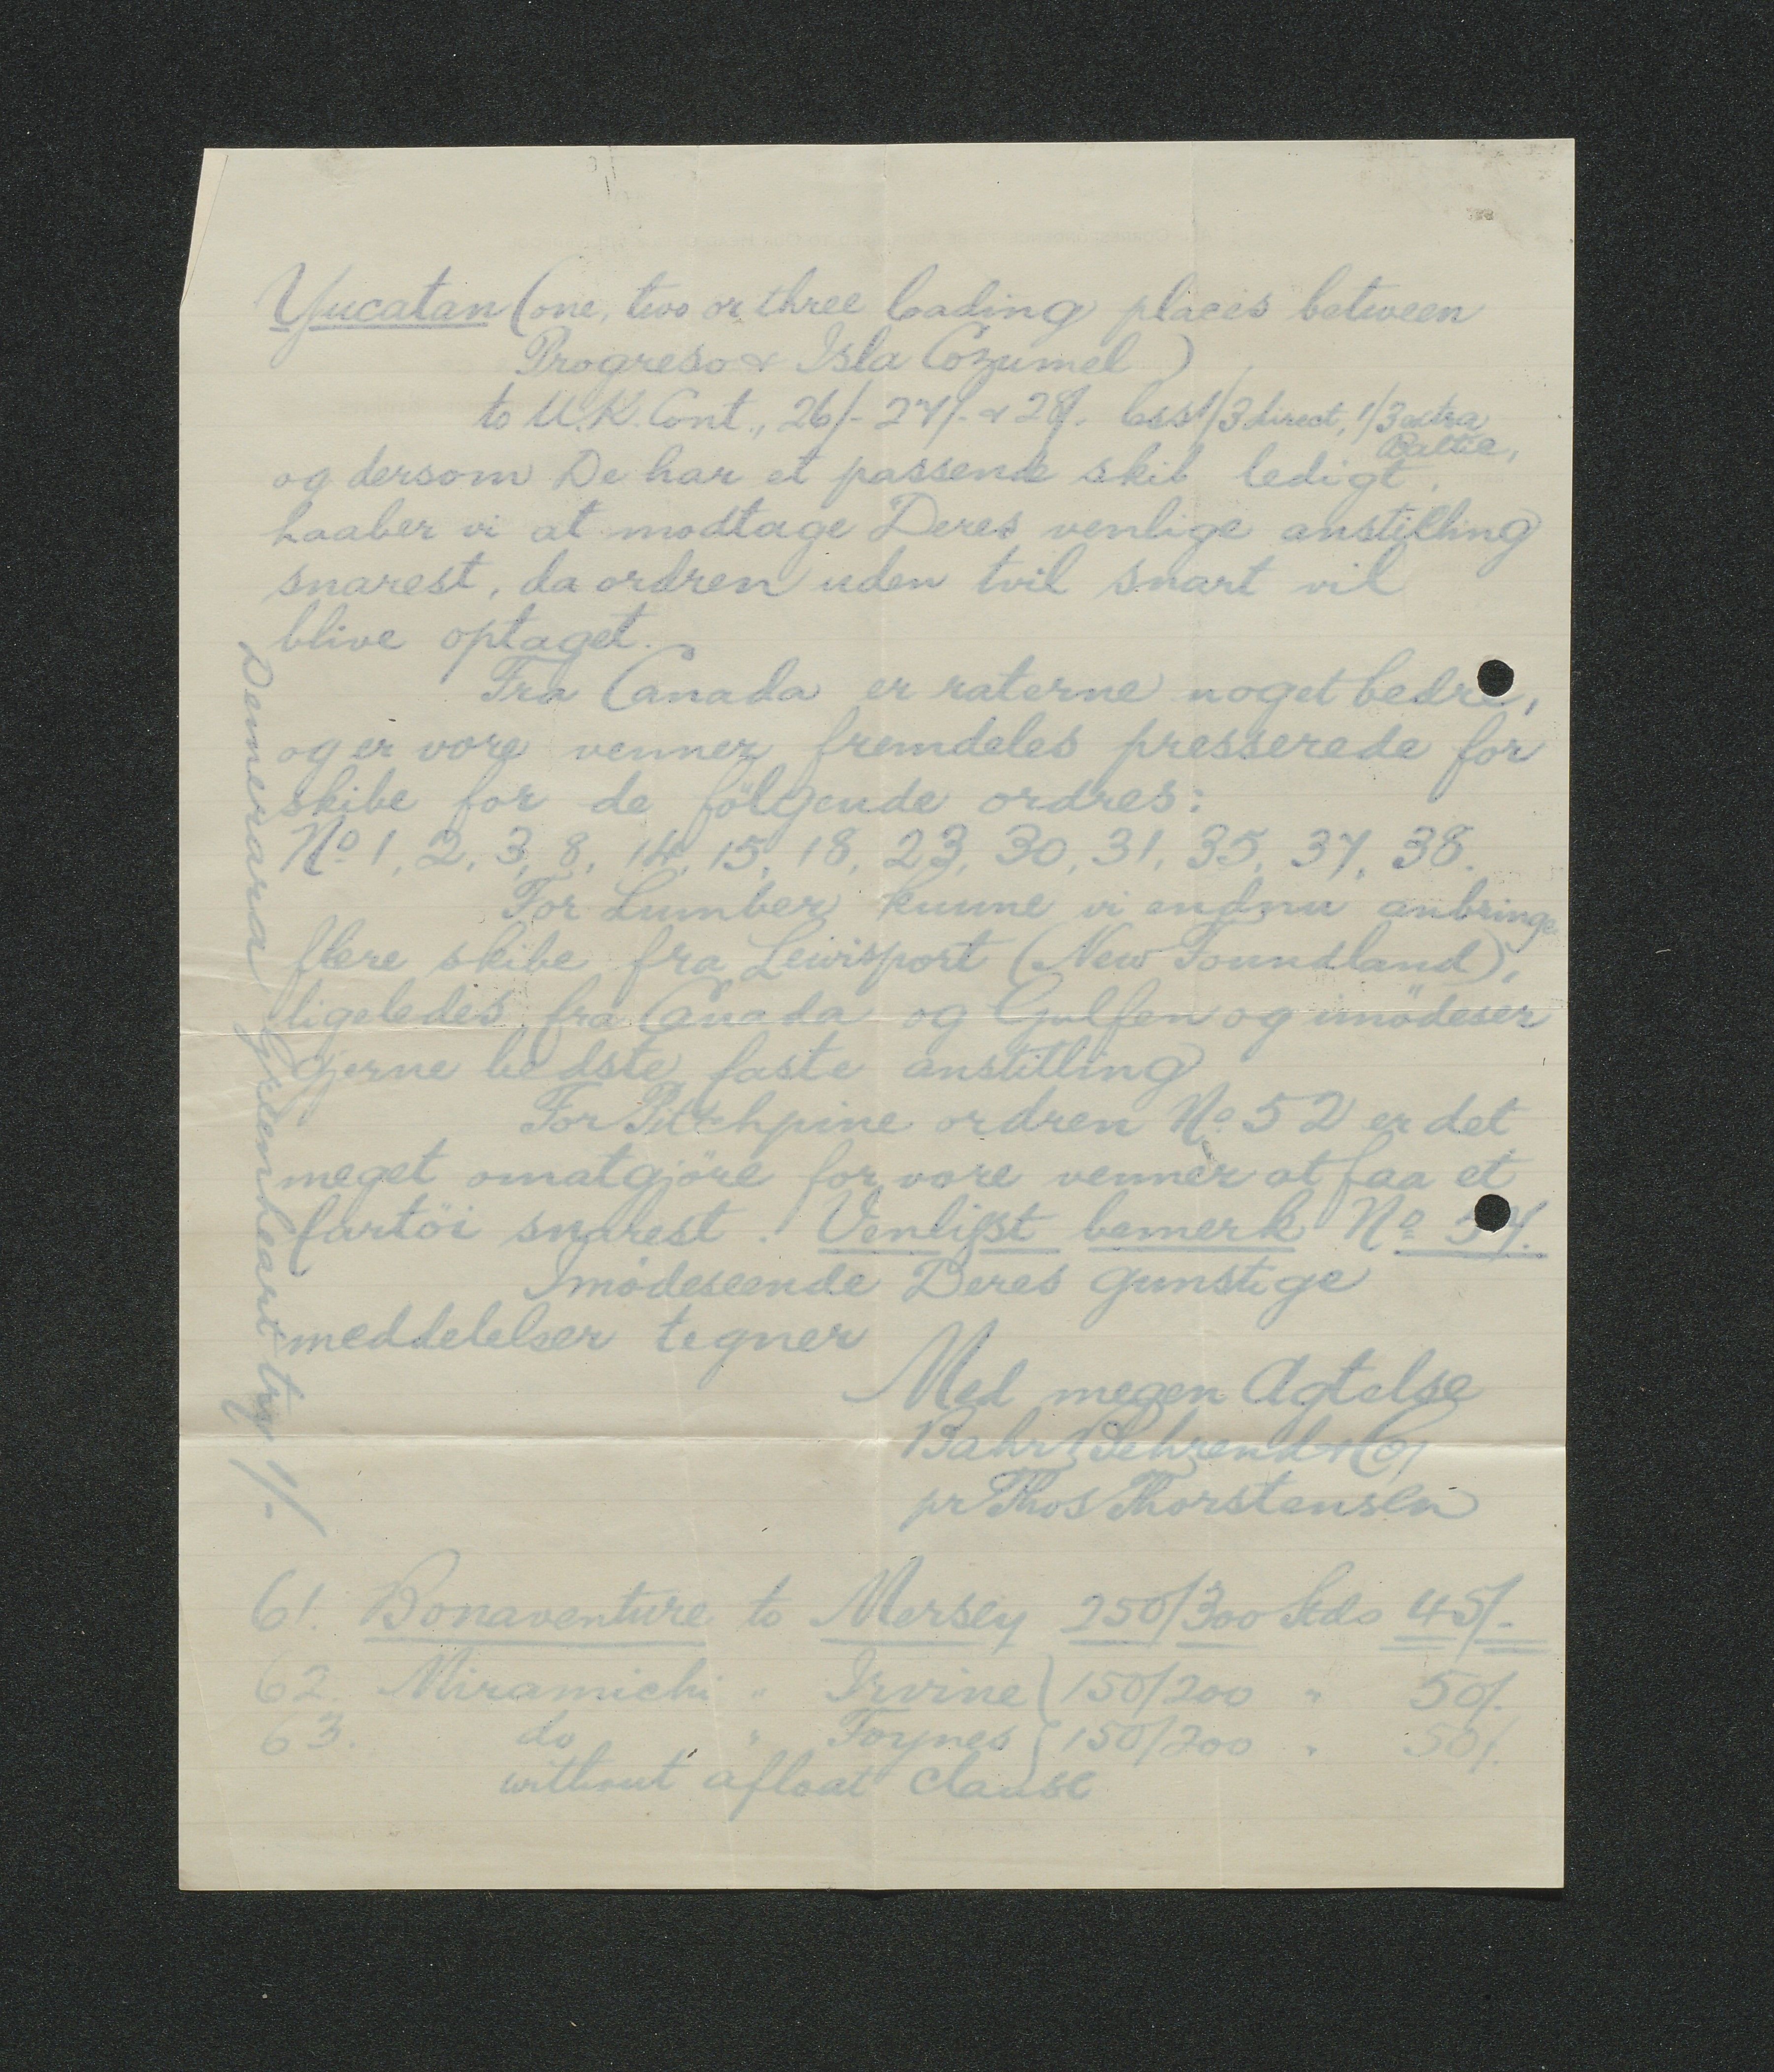 Yucatan (one, two or three loading places between
Progreso & Isla Cozumel)
to U.K. Cont., 26/- 27/- & 28/- less 1/3 direct, 1/3 extra
Baltic,
og dersom De har et passende skib ledigt,
haaber vi at modtage Deres venlige anstilling
snarest, da ordren uden tvil snart vil
blive optaget.
Fra Canada er raterne noget bedre,
og er vore venner fremdeles presserede for
skibe for de fölgende ordres:
No. 1, 2, 3, 8, 14, 15, 18, 23, 30, 31, 35, 37, 38.
For Lumber kunne vi endnu anbringe
flere skibe fra Lewisport (New Foundland),
ligeledes fra Canada og Gulfen og imödeser
gjerne bedste faste anstilling
For Pitchpine ordren No. 52 er det
meget omatgjöre for vore venner at faa et
fartöi snarest. Venligst bemerk No
Imödeseende Deres gunstige
meddelelser tegner
Med megen Agtelse
Bahr Behrend & Co
pr Thos Thorstensen
61. Bonaventure to Mersey 250/300 Stds 45/-
62. Miramichi " Irvine } 150/200 " 50/-
63. do " Foynes } 150/200 " 50/-
without afloat clause
Demerara Greenheart try